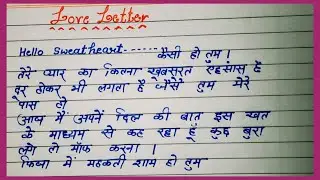 Love Letter
Hello sweatheart------ कैसी हो तुम।
तेरे प्यार का कितना खुबसुरत एहसास है
दूर होकर भी लगता है जैसे तुम मेरे
पास हो
आज मैं अपने दिल की बात इस खत
के माध्यम से कह रहा हूं कुछ बुरा
लगे तो माफ करना।
फिजा में महकती शाम हो तुम